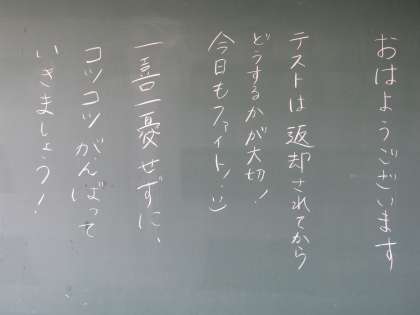 おはようございます
テストは返却されてから
どうするかが大切!
今日もファイト! :)
一喜一憂せずに、
コツコツがんばって
いきましょう!